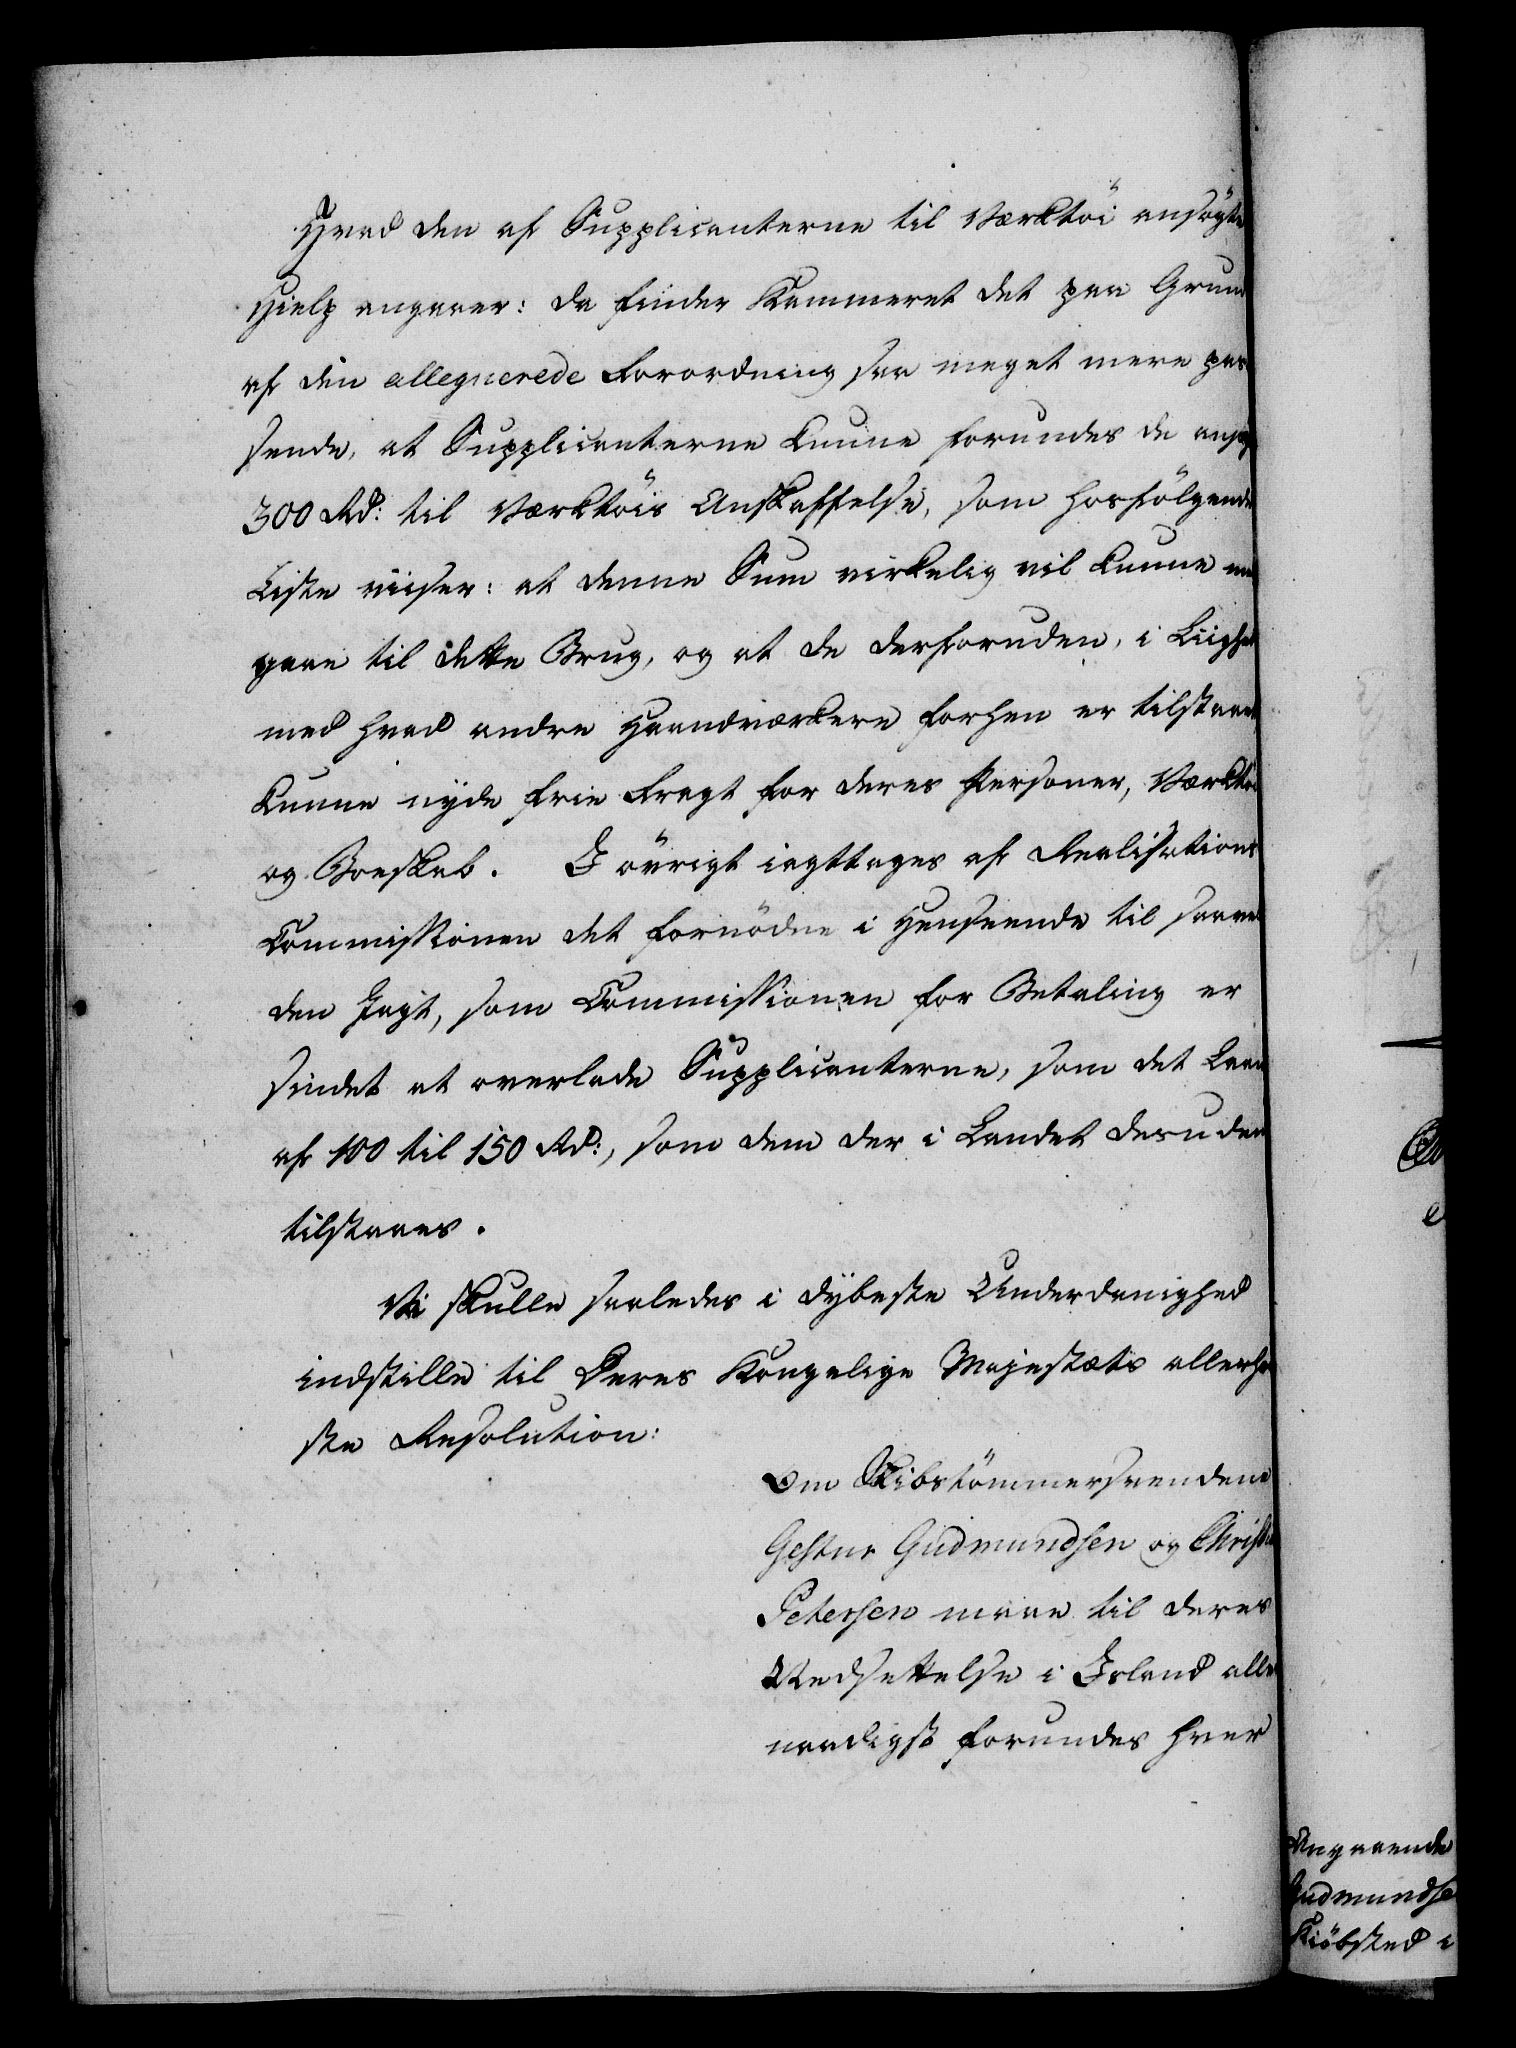 Hvad den af Supplicanterne til Værktöi ansögte
Hielp angaaer: da finder Kammeret det paa Grund
af den allegnerede Forordning saa meget mere pas
sende, at Supplicanterne kunne forundes de ansög
300 Rd: til Værktöis Anskaffelse, som hosfölgende
Liste viiser: at denne Sum virkelig vil kunne med
gaae til dette Brug, og at de derforuden, i Liighed
med hvad andre Haandværkere forhen er tilstaaet
kunne nyde frie Fragt for deres Personer, Værktöi
og Boeskab. I övrigt iagttages af Realisations
Commissionen det fornödne i Henseende til saavel
den Jagt, som Commissionen for Betaling er
sindet at overlade Supplicanterne, som det Laan
af 100 til 150 Rd:, som dem der i Landet desuden
tilstaaes.
Vi skulle saaledes i dybeste Underdanighed
indstille til Deres Kongelige Majestæts allerhöi
ste Resolution:
Om Skibstömmersvendene
Gestur Gudmundsen og Christen
Petersen maae til deres
Nedsettelse i Island aller
naadigst forundes hver
Angaaende
Gudmundse
Kiöbsted i